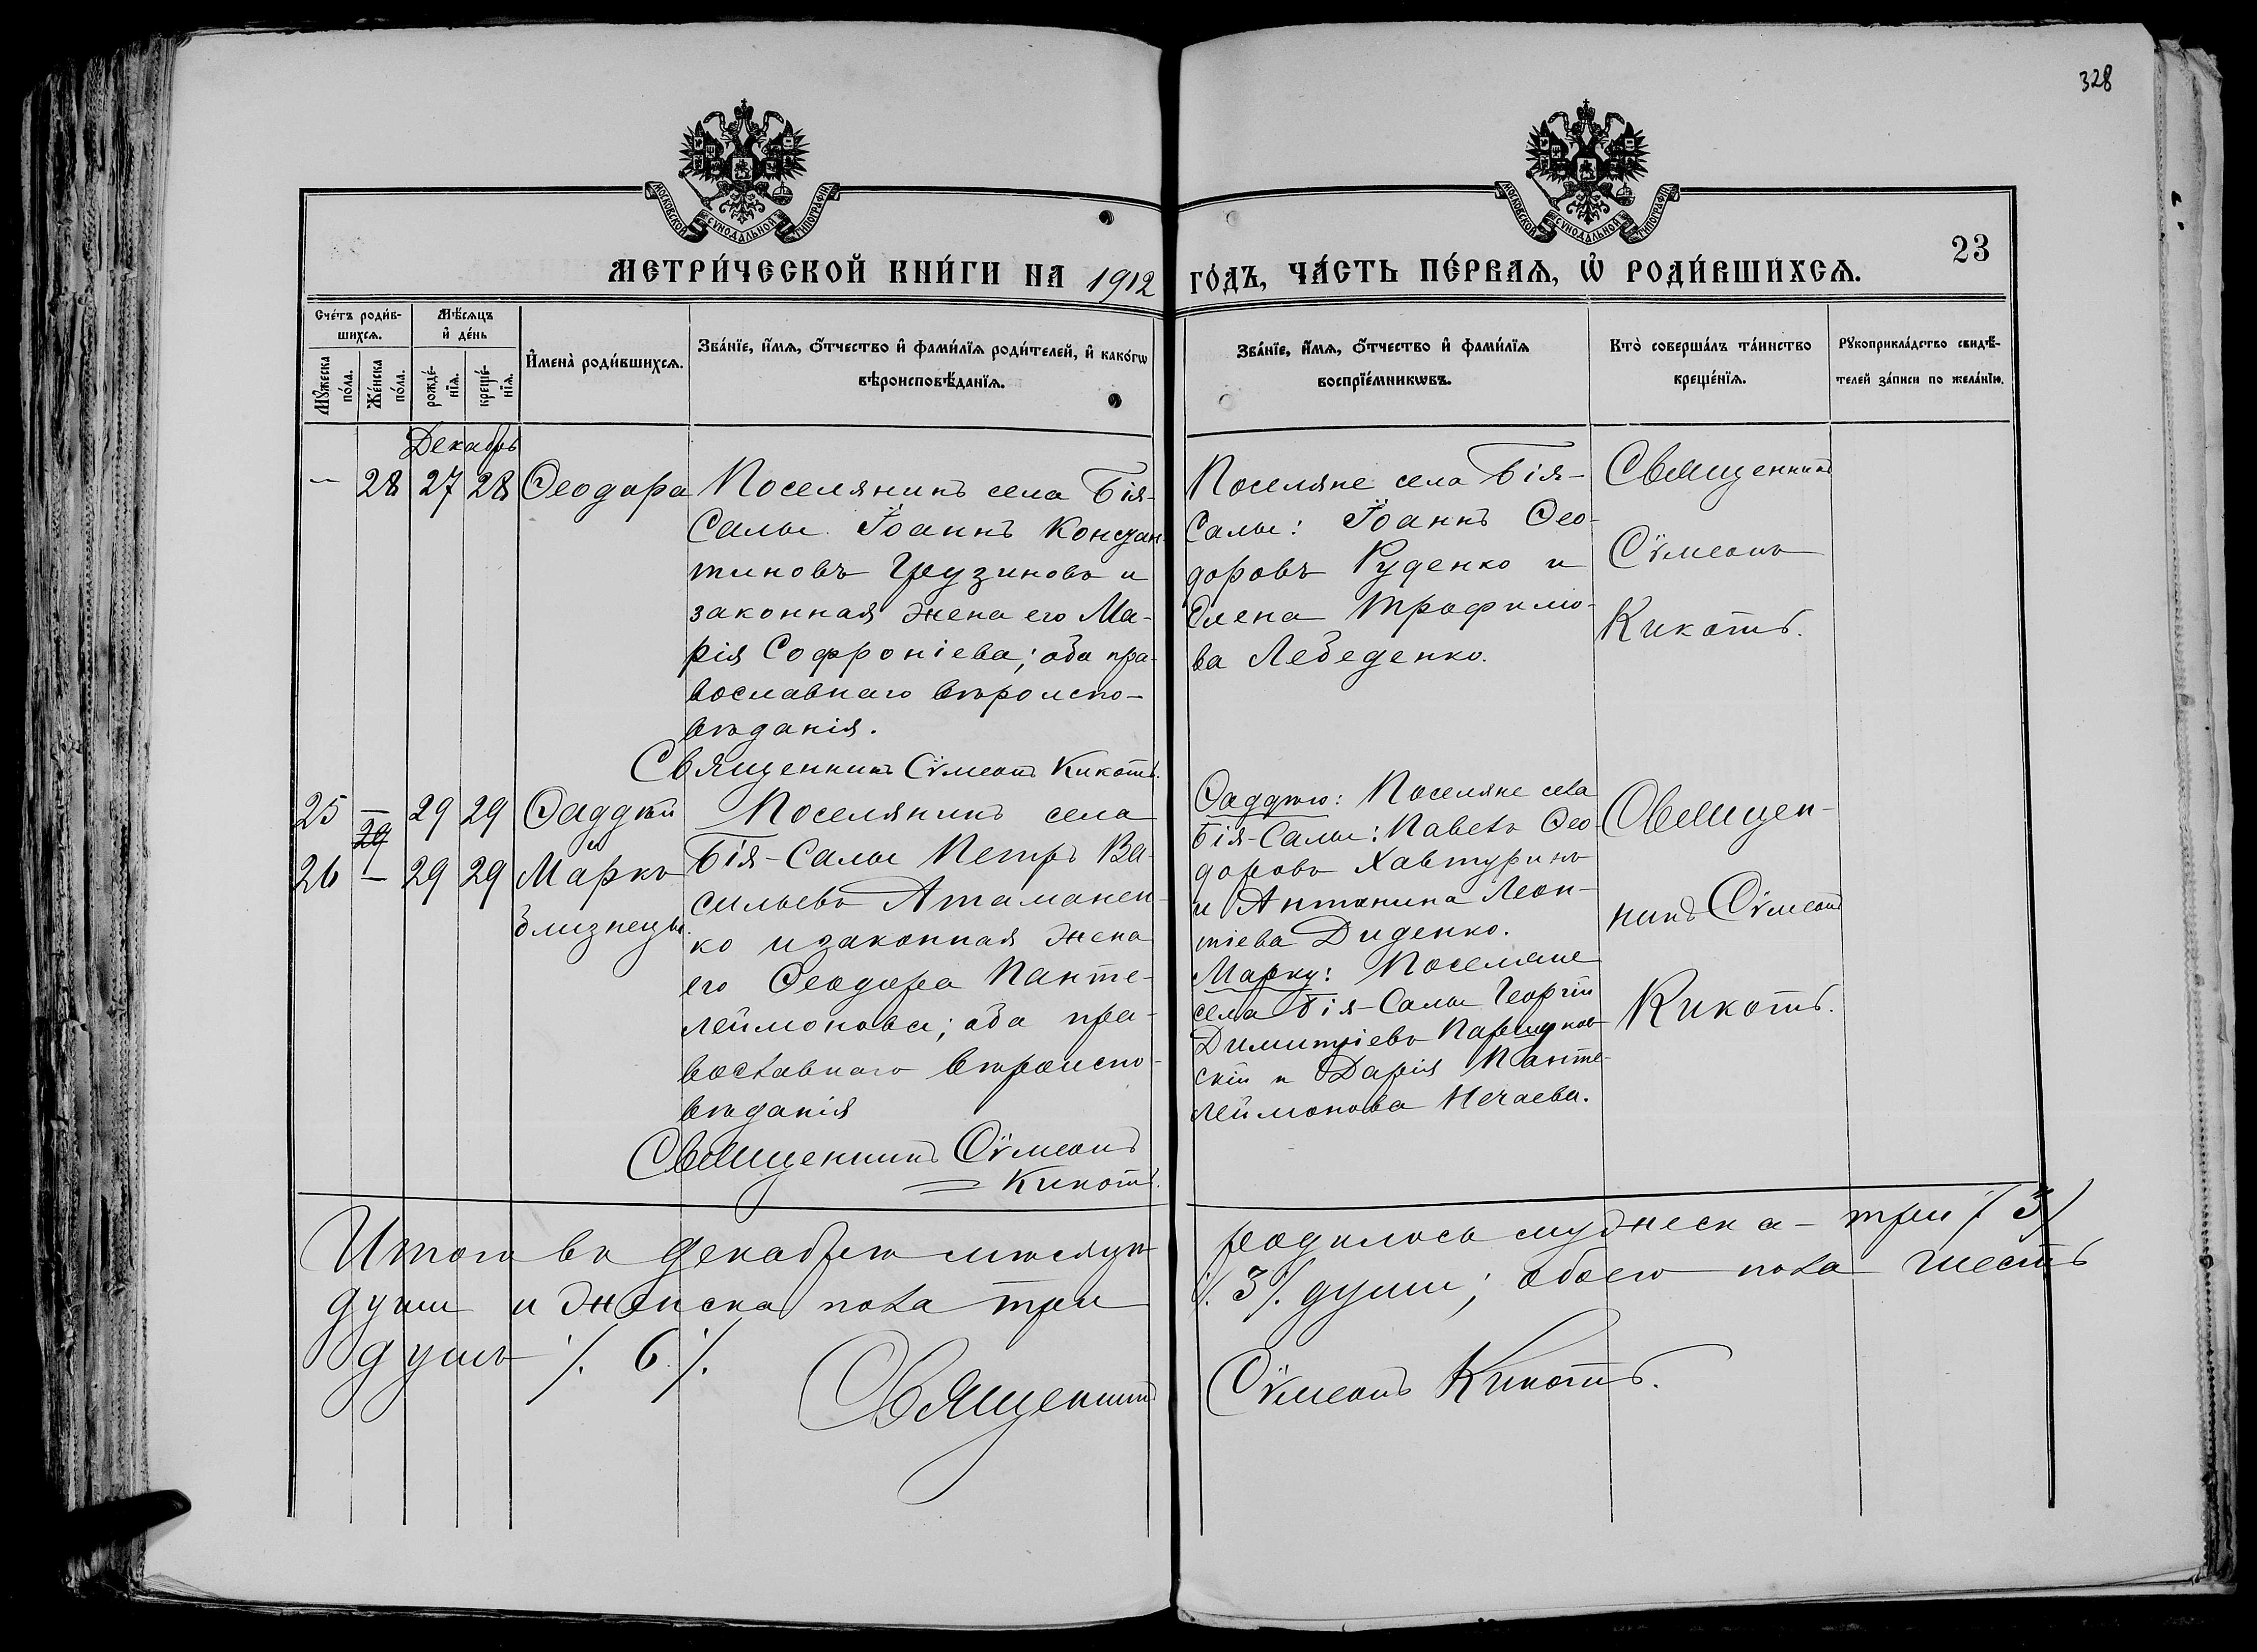 328
МОСКОВСКОЙ СѴНОДАЛЬНОЙ ТИПОГРАФІИ
МОСКОВСКОЙ СѴНОДАЛЬНОЙ ТИПОГРАФІИ
23
МЕТРИ́ЧЕСКОЙ КНИ́ГИ НА 1912 ГО́ДЪ, ЧА́СТЬ ПЕ́РВАѦ, Ѡ РОДИ́ВШИХСѦ.
Сче́тъ роди́в-
шихсѧ.
Мꙋ́жеска
по́ла.
Же́нска
по́ла.
Мѣ́сѧцъ
и҆ де́нь
рожде́-
нїѧ.
креще́-
нїѧ.
И҆мена̀ роди́вшихсѧ.
Зва́нїе, и҆́мѧ, ѻ҆́тчество и҆ фами́лїѧ роди́телей, и҆ како́гѡ
вѣроисповѣ́данїѧ.
Зва́нїе, и҆́мѧ, ѻ҆́тчество и҆ фами́лїѧ
воспрїе́мникѡвъ.
Кто̀ соверша́лъ та́инство
креще́нїѧ.
Рꙋкоприкла́дство свидѣ́-
телей за́писи по жела́нїю.
Декабрь
— 28 27 28 Ѳеодора
Поселянинъ села Бія-
Салы Іоаннъ Констан-
тиновъ Грузиновъ и
законная жена его Ма-
рія Софроніева; оба пра-
вославнаго вѣроиспо-
вѣданія.
Священникъ Сѵмеонъ Кикоть.
Поселяне села Бія-
Салы: Іоаннъ Ѳео-
доровъ Руденко и
Елена Трофимо-
ва Лебеденко.
Священникъ
Сѵмеонъ
Кикоть.
25 — 29 29 Ѳаддей
29 и
26 — 29 29 Маркъ
близнецы.
Поселянинъ села
Бія-Салы Петръ Ва-
сильевъ Атаманен-
ко и законная жена
его Ѳеодора Панте-
леймонова; оба пра-
вославнаго вѣроиспо-
вѣданія
Священникъ Сѵмеонъ
Кикоть.
Ѳаддею: Поселяне села
Бія-Салы: Павелъ Ѳео-
доровъ Хавтуринъ
и Антонина Леон-
тіева Диденко.
Марку: Поселяне
села Бія-Салы Георгій
Димитріевъ
скій и Дарія Панте-
леймонова Нечаева.
Священ-
никъ Сѵмеонъ
Кикоть.
Итого въ декабрѣ мѣсяцѣ родилось мужеска - три /3/
души и женска пола три /. 3 /. души; обоего пола шесть
душъ /. 6 /.
Священникъ Сѵмеонъ Кикоть.